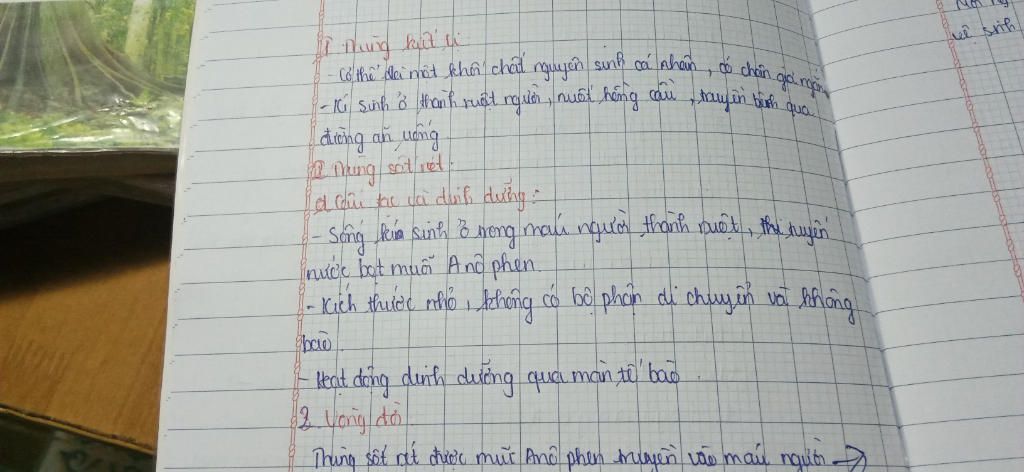 vệ sinh
I Trùng kiết lị
- Cơ thể là một khối chất nguyên sinh có nhân, có chân giả ngắn
- Kí sinh ở thành ruột người, nuốt hồng cầu, truyền bệnh qua
đường ăn uống
II Trùng sốt rét.
a Cấu tạo và dinh dưỡng:
- Sống kí sinh ở trong máu người, thành ruột, tuyến
nước bọt muỗi Anôphen.
- Kích thước nhỏ, không có bộ phận di chuyển và không
bào
- Hoạt động dinh dưỡng qua màn tế bào.
2. Vòng đời
Trùng sốt rét được muỗi Anôphen truyền vào máu người →